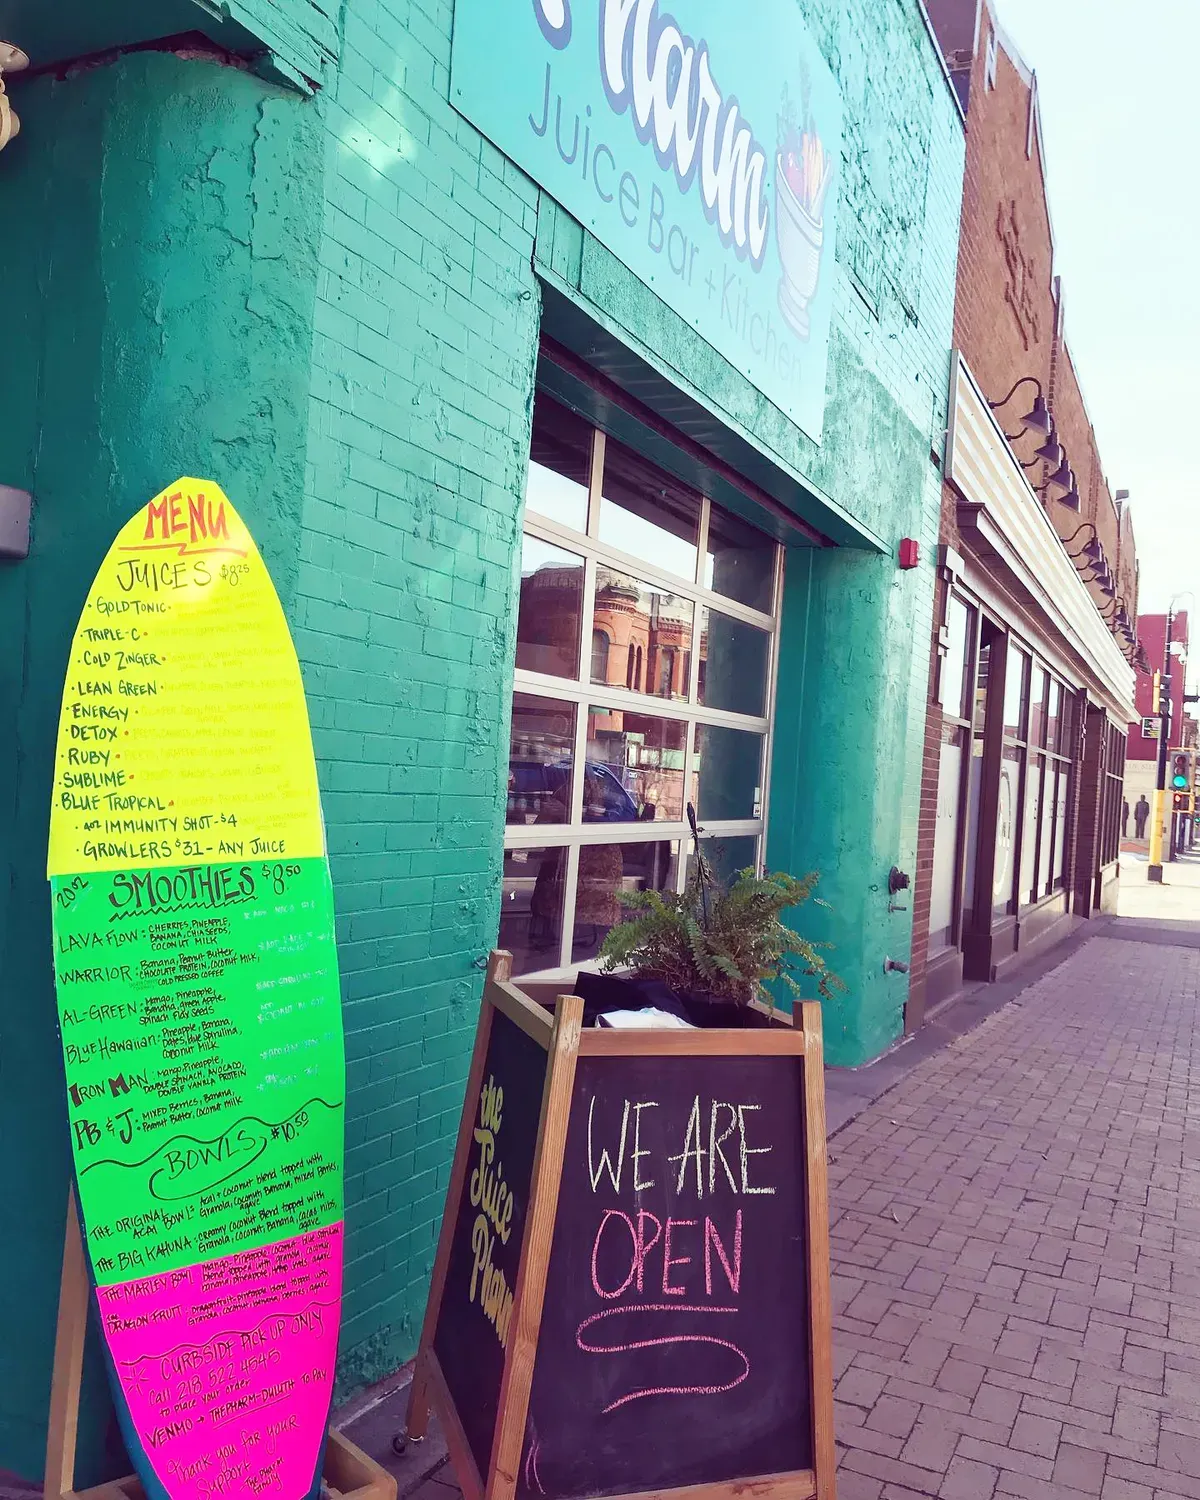 Pharm
Juice Bar + Kitchen
MENU
JUICES $8.25
· GOLD TONIC ·
· TRIPLE-C ·
· COLD ZINGER ·
· LEAN GREEN ·
· ENERGY ·
· DETOX ·
· RUBY ·
· SUBLIME ·
· BLUE TROPICAL ·
· 4oz IMMUNITY SHOT - $4
· GROWLERS $31 - ANY JUICE
20oz SMOOTHIES $8.50
LAVA FLOW: CHERRIES, PINEAPPLE,
BANANA, CHIA SEEDS,
COCONUT MILK
WARRIOR: Banana, Peanut Butter,
CHOCOLATE PROTEIN, COCONUT MILK,
COLD PRESSED COFFEE
AL-GREEN: Mango, Pineapple,
Banana, Green Apple,
Spinach Flax Seeds
BLUE Hawaiian: Pineapple, Banana,
Dates, Blue Spirulina,
COCONUT MILK
IRON MAN: Mango, Pineapple,
DOUBLE SPINACH, AVOCADO,
DOUBLE VANILLA PROTEIN
PB & J: MIXED Berries, Banana,
Peanut Butter, Coconut MILK
BOWLS $10.50
THE ORIGINAL ACAI BOWL: Acai + Coconut blend topped with
Granola, Coconut, Banana, mixed Berries,
agave
THE BIG KAHUNA: Creamy Coconut Blend topped with
Granola, Coconut, Banana, Cacao nibs,
agave
THE MARLEY BOWL Mango-Pineapple, Coconut, blue Spirulina
blend topped with granola,
banana, pineapple, Hemp seeds, agave
the DRAGON FRUIT: Dragonfruit-pineapple blend topped with
Granola, coconut, banana, berries, agave
CURBSIDE PICK UP ONLY
Call 218 522 4545
to place your order
VENMO → THEPHARM-DULUTH TO PAY
Thank you for your
Support
The Pharm
Family
the
Juice
Pharm
WE ARE
OPEN